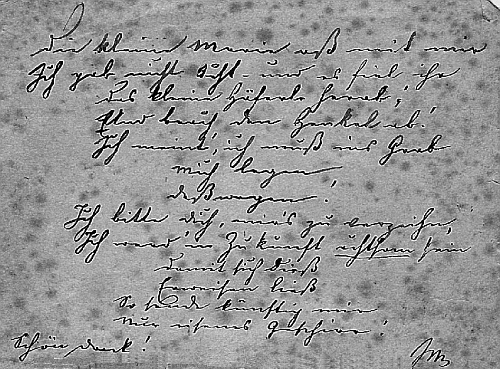 Die kleine Marie aß mit mir
Ich gab nicht Acht - und es fiel ihr
Das kleine Häferle herab,
Und brach den Henkel ab!
Ich meint', ich muß ins Grab
mich legen
deßwegen!
Ich bitte Dich, mir's zu verzeihn,
Ich werd' in Zukunft achtsam sein
damit sich dieß
Erweisen ließ
So sende künftig mir
Nur eisernes Geschirr!
Schön dank!